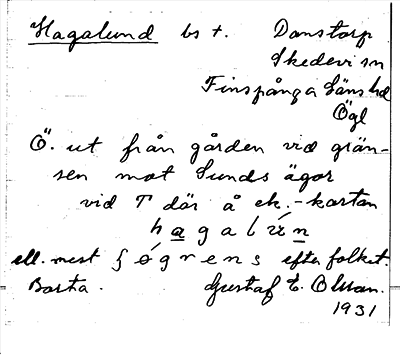 Hagalund bs t. Danstorp
Skedevi sn
Finspånga läns hd
Ögl
Ö. ut från gården vid grän-
sen mot Sunds ägor
vid T där å ek.-kartan
hagalún
ell. mest søgrens efter folket.
Borta. Gustaf E. Olsson.
1931